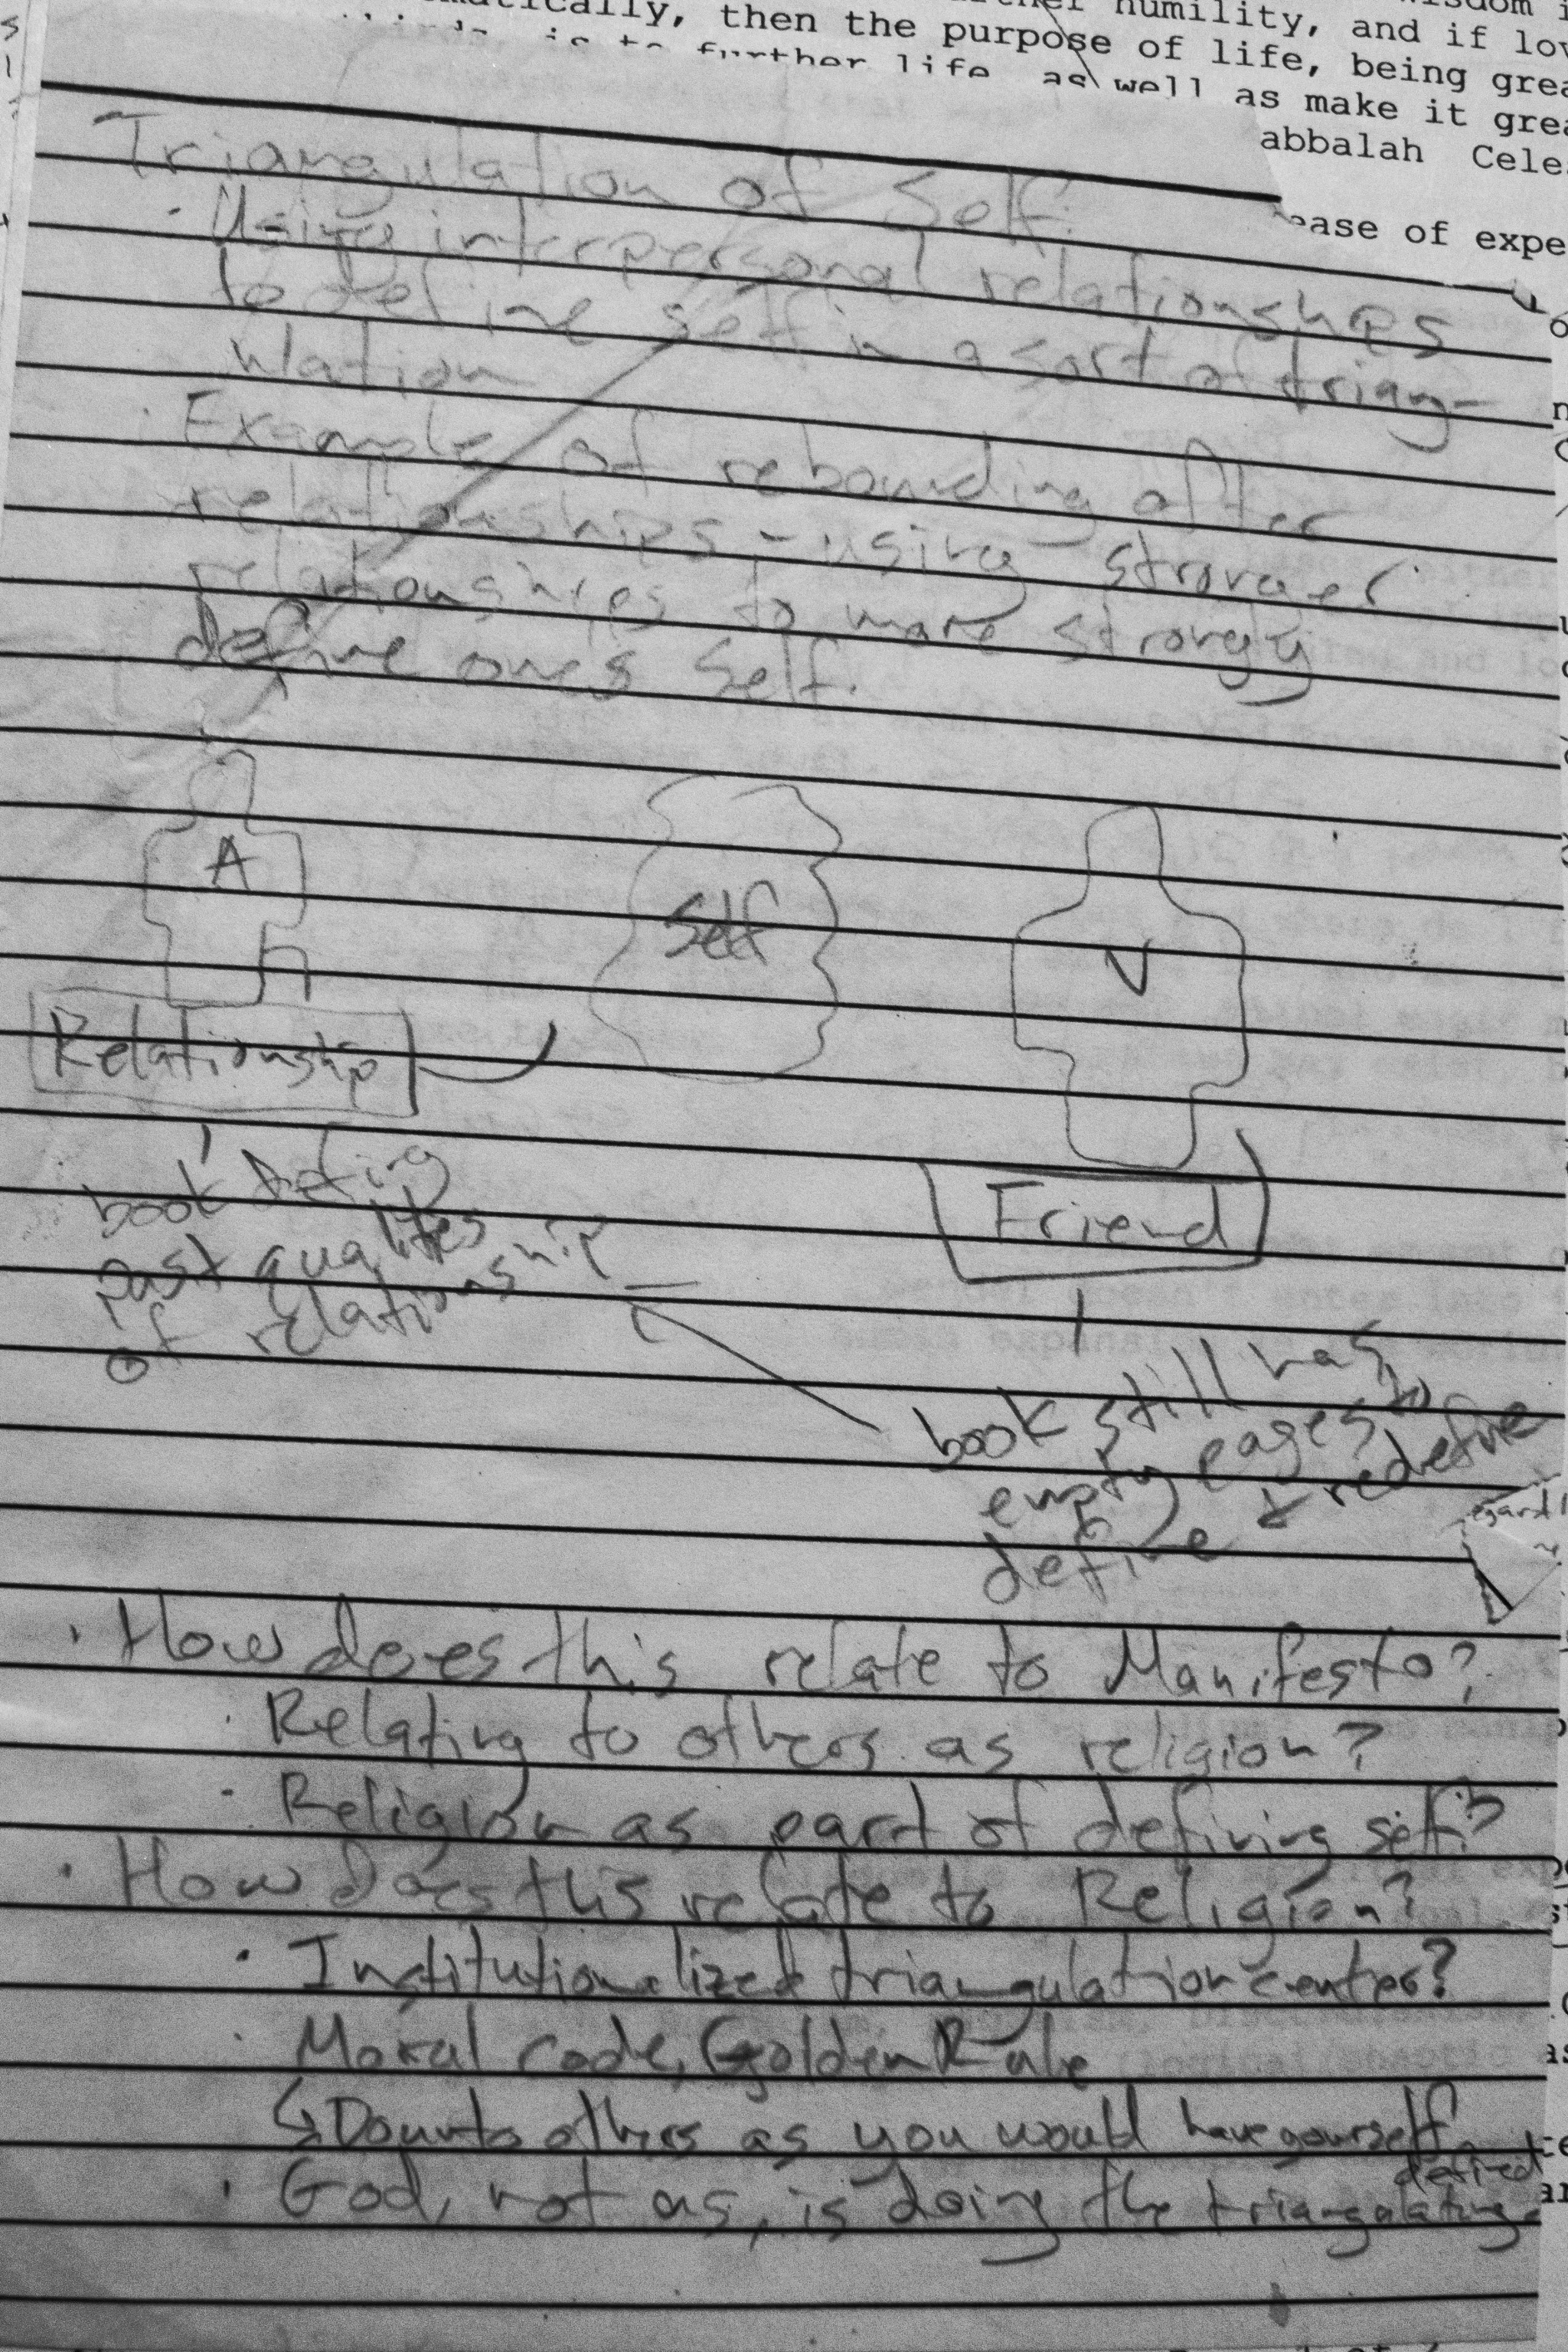 humility, and if
then the purpose of life, being
is to further life as well as make it
abbalah Cele
ease of expe
Triangulation of Self
· Using interpersonal relationships
to define self in a sort of triang-
ulation
· Example of rebounding after
relationships - using stronger
relationships to more strongly
define ones Self.
A
Self
V
Relationship
Friend
book defing
past qualities
of relationship
book still has
empty pages to
define & redefine
· How does this relate to Manifesto?
· Relating to others as religion?
· Religion as part of defining self?
· How does this relate to Religion?
· Institutionalized triangulation center?
· Moral code, Golden Rule
↳ Do unto others as you would have yourself
defined
· God, not us, is doing the triangulating